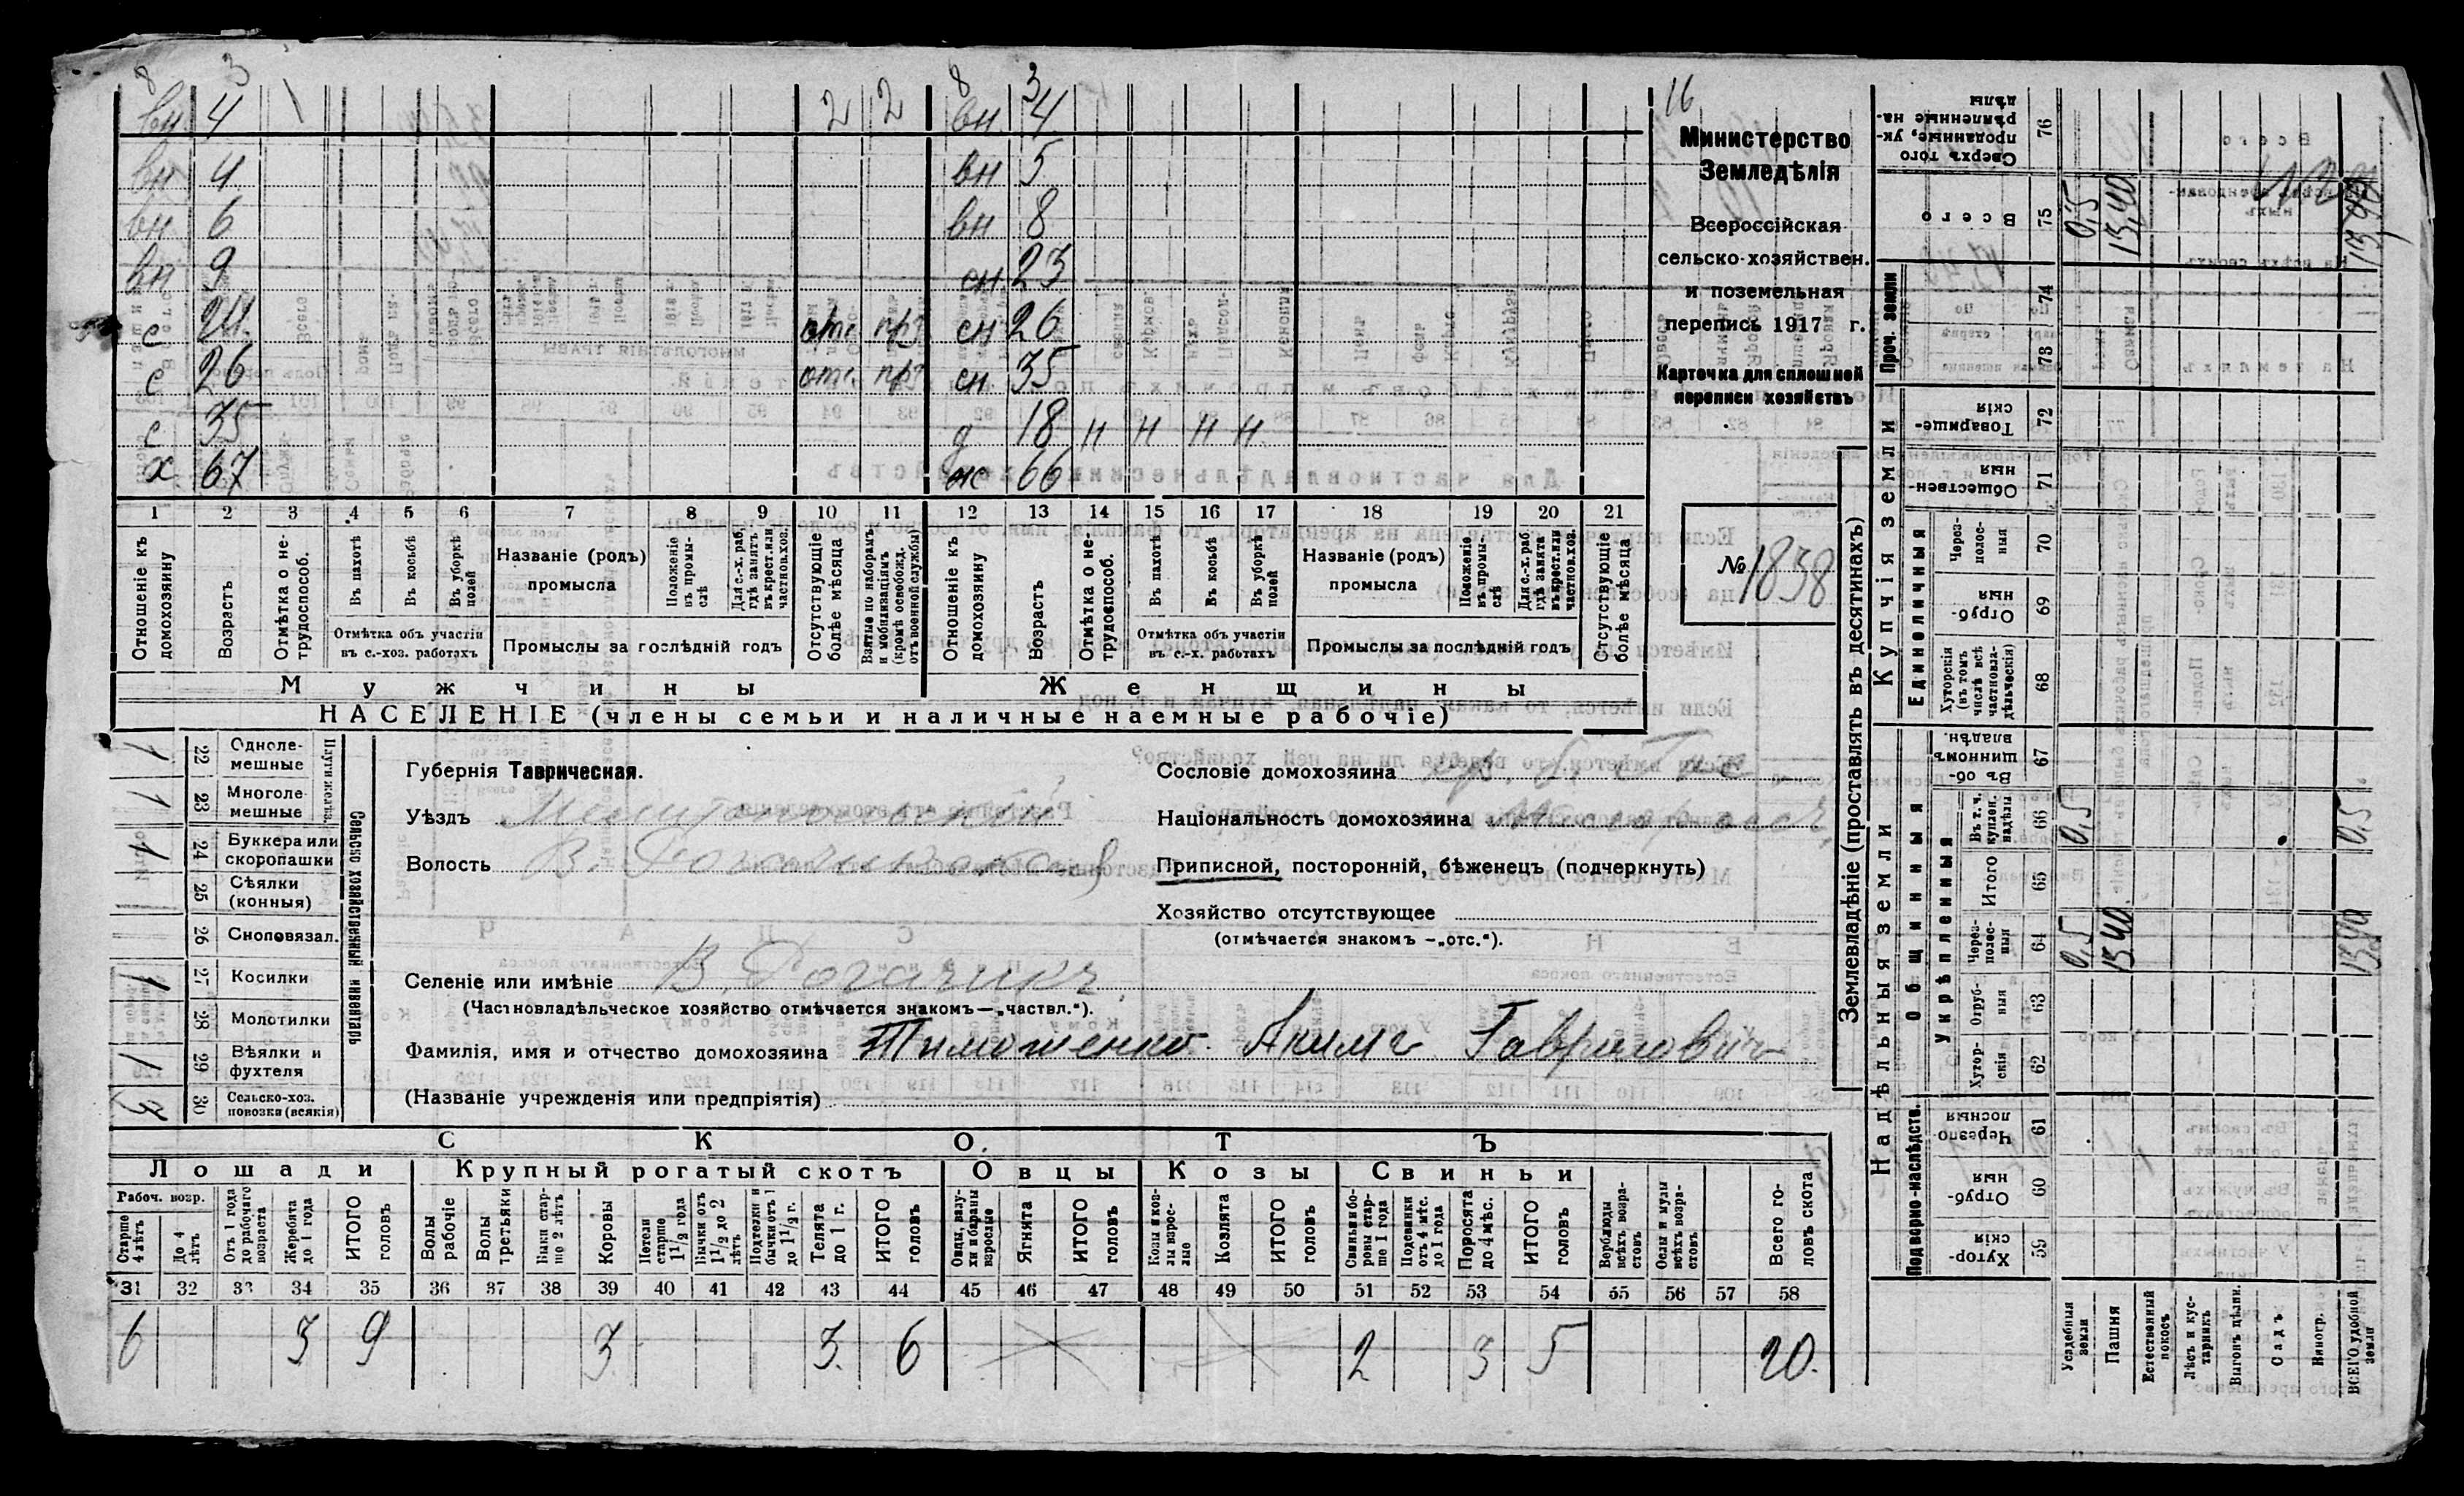 8 3 8 3 16
вн. 4 2 2 вн. 4
вн 4 вн 5
вн 6 вн 8
вн 9 сн. 23
с 24. отс. пр сн 26
с 26 отс. пр сн 35
с 35 д 18 н н н н
х 67 ж 66
1 2 3 4 5 6 7 8 9 10 11 12 13 14 15 16 17 18 19 20 21
Отношеніе къ домохозяину
Возрастъ
Отмѣтка о не-трудоспособ.
Въ пахотѣ
Въ косьбѣ
Въ уборкѣ полей
Отмѣтка объ участіи въ с.-хоз. работахъ
Названіе (родъ) промысла
Положеніе въ промы-слѣ
Для с.-х. раб. гдѣ занятъ въ крест. или частнов. хоз.
Промыслы за послѣдній годъ
Отсутствующіе болѣе мѣсяца
Взятые по наборамъ и мобилизаціямъ (кромѣ освобожд. отъ военной службы)
Отношеніе къ домохозяину
Возрастъ
Отмѣтка о не-трудоспособ.
Въ пахотѣ
Въ косьбѣ
Въ уборкѣ полей
Отмѣтка объ участіи въ с.-х. работахъ
Названіе (родъ) промысла
Положеніе въ промы-слѣ
Для с.-х. раб. гдѣ занята въ крест. или частнов. хоз.
Промыслы за послѣдній годъ
Отсутствующіе болѣе мѣсяца
Мужчины Женщины
НАСЕЛЕНІЕ (члены семьи и наличные наемные рабочіе)
Министерство
Земледѣлія
Всероссійская
сельско-хозяйствен.
и поземельная
перепись 1917 г.
Карточка для сплошной
переписи хозяйствъ
№ 1838
Сельско хозяйственный инвентарь
Плуги желѣз.
22 Одноле-мешные 1
23 Многоле-мешные 1
24 Буккера или скоропашки 1
25 Сѣялки (конныя)
26 Сноповязал.
27 Косилки 1
28 Молотилки
29 Вѣялки и фухтеля 1
30 Сельско-хоз. повозки (всякія) 3
Губернія Таврическая.
Уѣздъ Мелитопольскій
Волость В. Рогачикская
Селеніе или имѣніе В. Рогачикъ
(Частновладѣльческое хозяйство отмѣчается знакомъ—„частвл.“).
Фамилія, имя и отчество домохозяина Тимошенко Акимъ Гавриловичъ
(Названіе учрежденія или предпріятія)
Сословіе домохозяина
Національность домохозяина
Приписной, посторонній, бѣженецъ (подчеркнуть)
Хозяйство отсутствующее
(отмѣчается знакомъ —„отс.“).
СКОТЪ
Лошади Крупный рогатый скотъ Овцы Козы Свиньи
Рабоч. возр.
Старше 4 лѣтъ
До 4 лѣтъ
Отъ 1 года до рабочаго возраста
Жеребята до 1 года
ИТОГО головъ
Волы рабочіе
Волы третьяки
Быки стар-ше 2 лѣтъ
Коровы
Нетели старше 1½ года
Бычки отъ 1½ до 2 лѣтъ
Подтелки и бычки отъ 1 до 1½ г.
Телята до 1 г.
ИТОГО головъ
Овцы, валу-хи и бараны взрослые
Ягнята
ИТОГО головъ
Козы и коз-лы взрос-лые
Козлята
ИТОГО головъ
Свиньи и бо-ровы стар-ше 1 года
Подсвинки отъ 4 мѣс. до 1 года
Поросята до 4 мѣс.
ИТОГО головъ
Верблюды всѣхъ возра-стовъ
Ослы и мулы всѣхъ возра-стовъ
Всего го-ловъ скота
31 32 33 34 35 36 37 38 39 40 41 42 43 44 45 46 47 48 49 50 51 52 53 54 55 56 57 58
6 3 9 3 3. 6 2 3 5 20.
Землевладѣніе (проставлять въ десятинахъ)
Надѣльныя земли
Купчія земли
Проч. земли
Подворно-наслѣдств.
Общинныя
Укрѣпленныя
Единоличныя
76 Сверхъ того проданные, ук-рѣпленные на-дѣлы
75 Всего 0,5 13,40 13,90
74
73
72 Товарище-скія
71 Обществен-ныя
70 Через-полос-ныя
69 Отруб-ныя
68 Хуторскія (въ томъ числѣ всѣ частновла-дѣльческія)
67 Въ об-щинномъ владѣн.
66 Въ т. ч. куплен. надѣлы 0,5 0,5
65 Итого
64 Через-полос-ныя 0,5 13.40 13,90
63 Отруб-ныя
62 Хутор-скія
61 Черезпо-лосныя
60 Отруб-ныя
59 Хутор-скія
Усадебныя земли
Пашня
Естественный покосъ
Лѣсъ и кус-тарникъ
Выгонъ цѣлин.
Садъ
Виногр.
ВСЕГО удобной земли